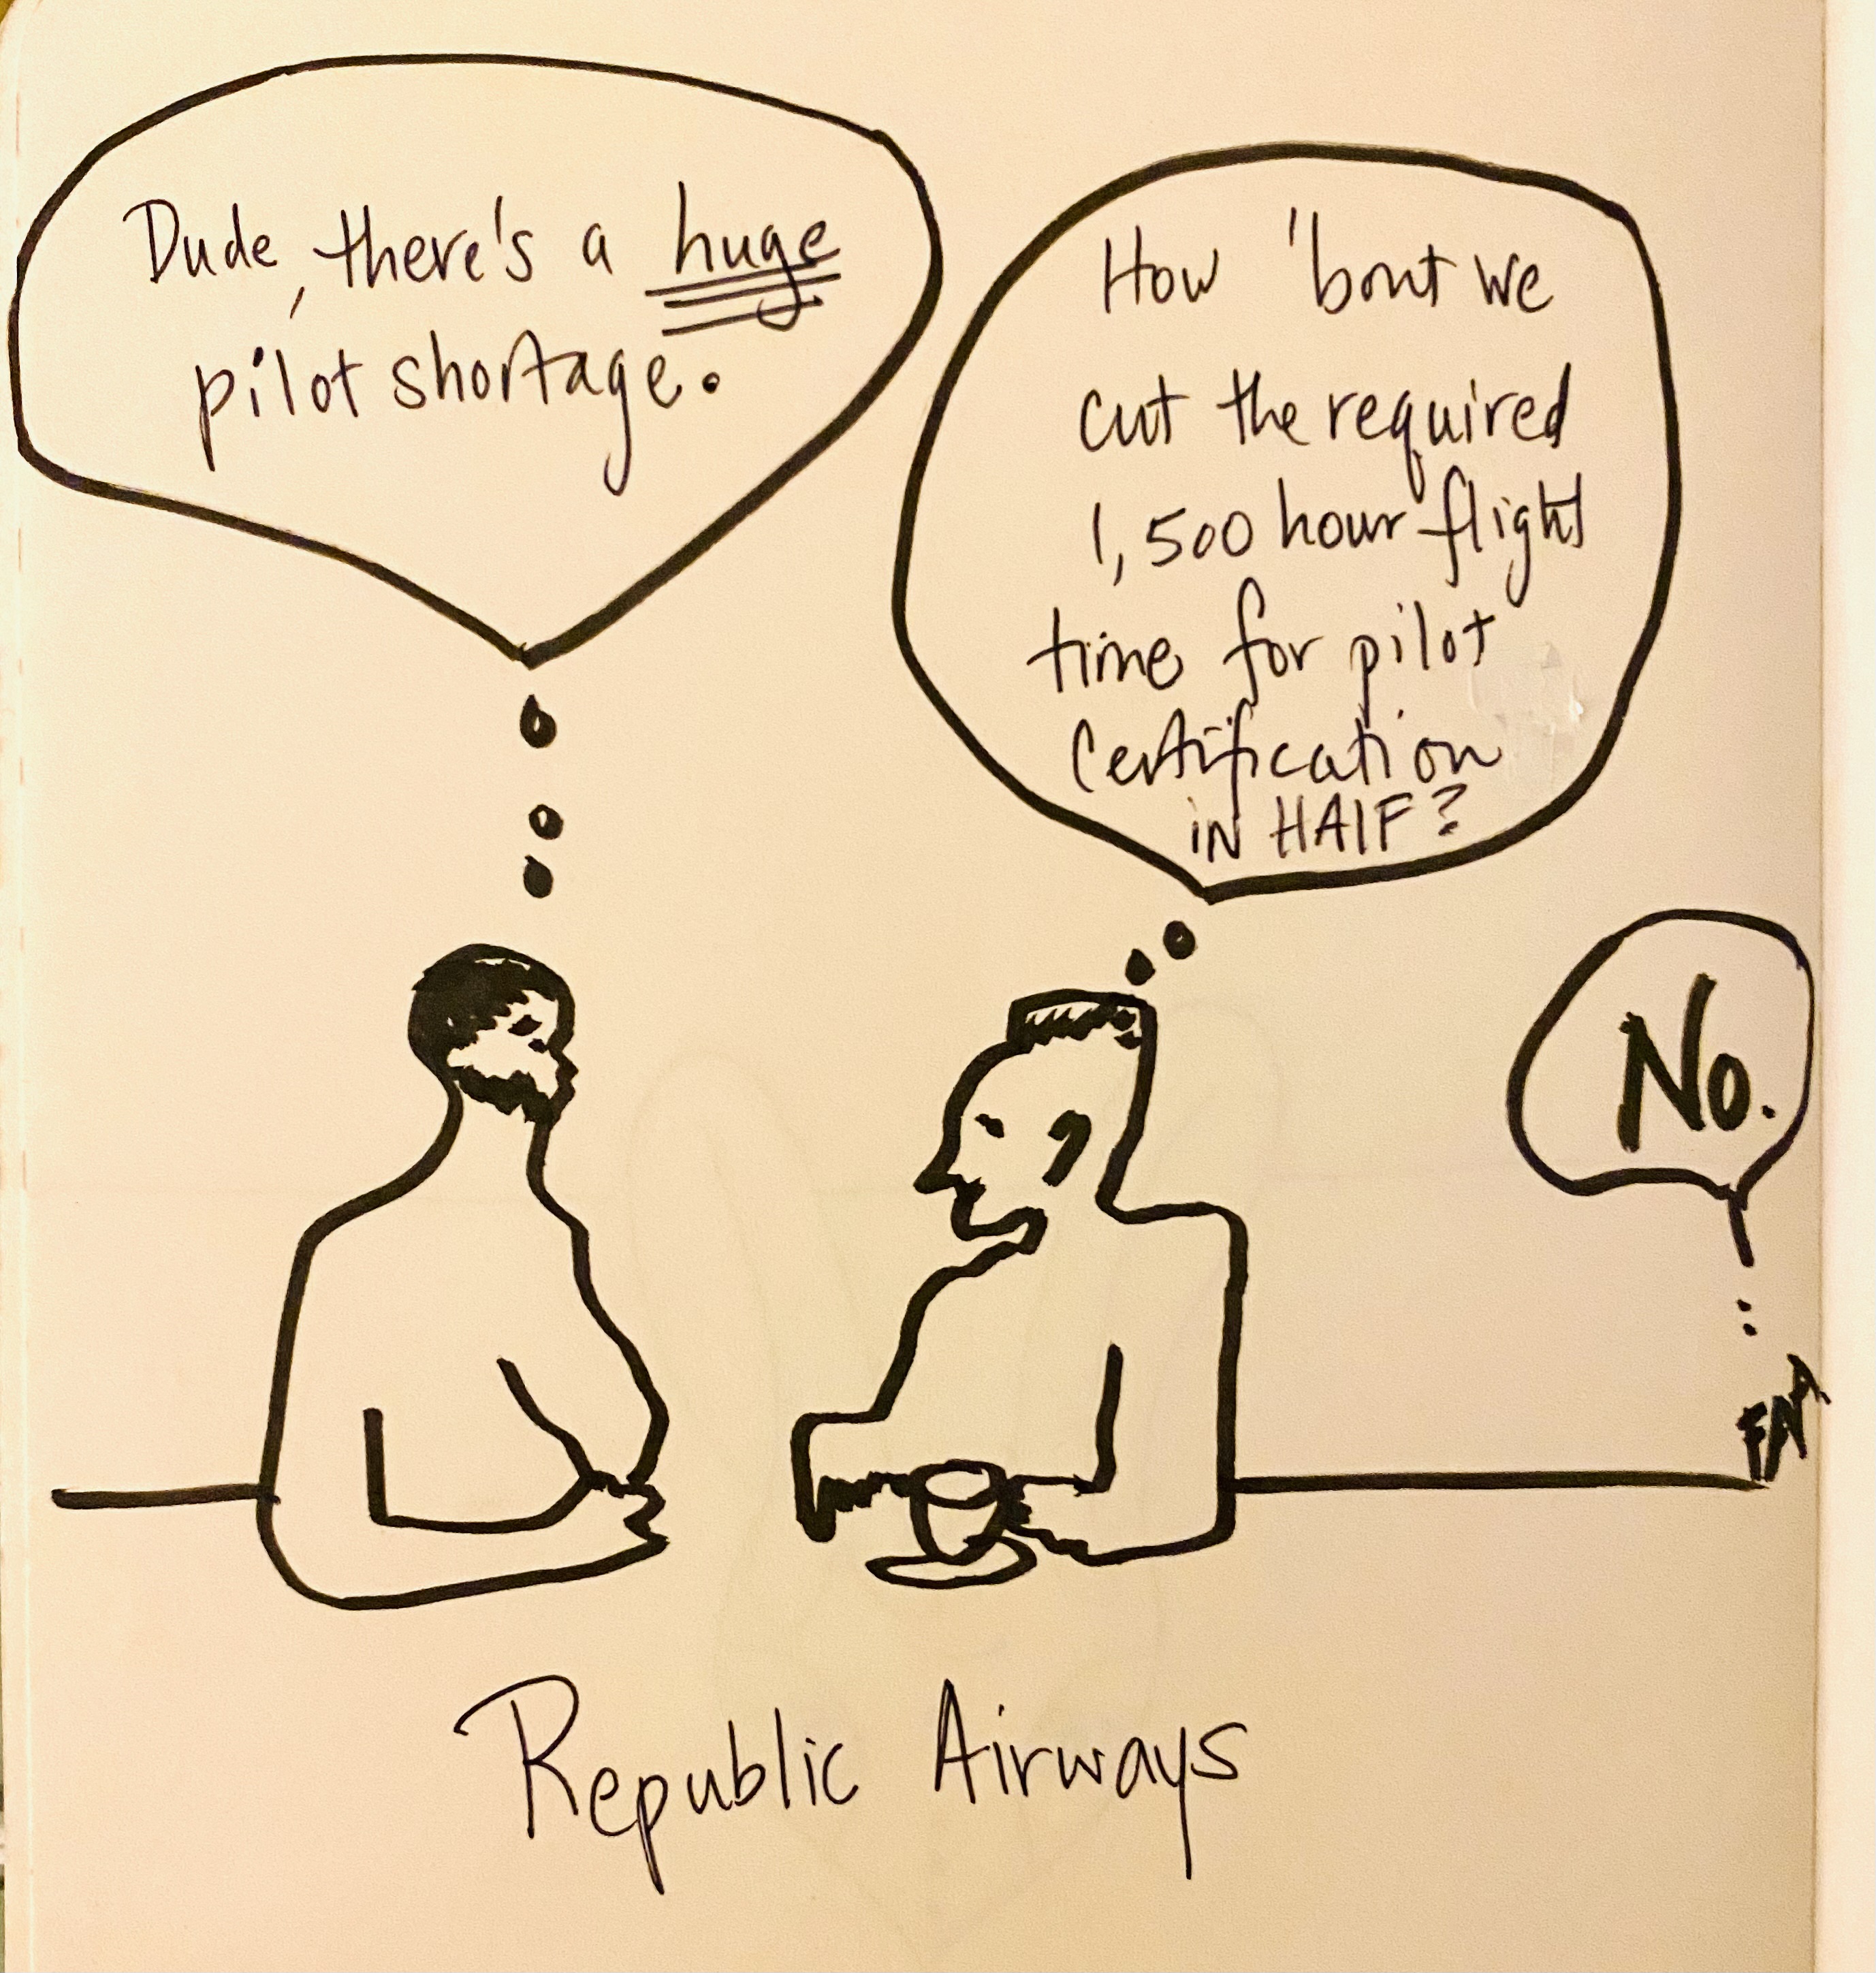 Dude, there's a huge
pilot shortage.
How 'bout we
cut the required
1,500 hour flight
time for pilot
Certification
iN HAlF?
No.
Republic Airways